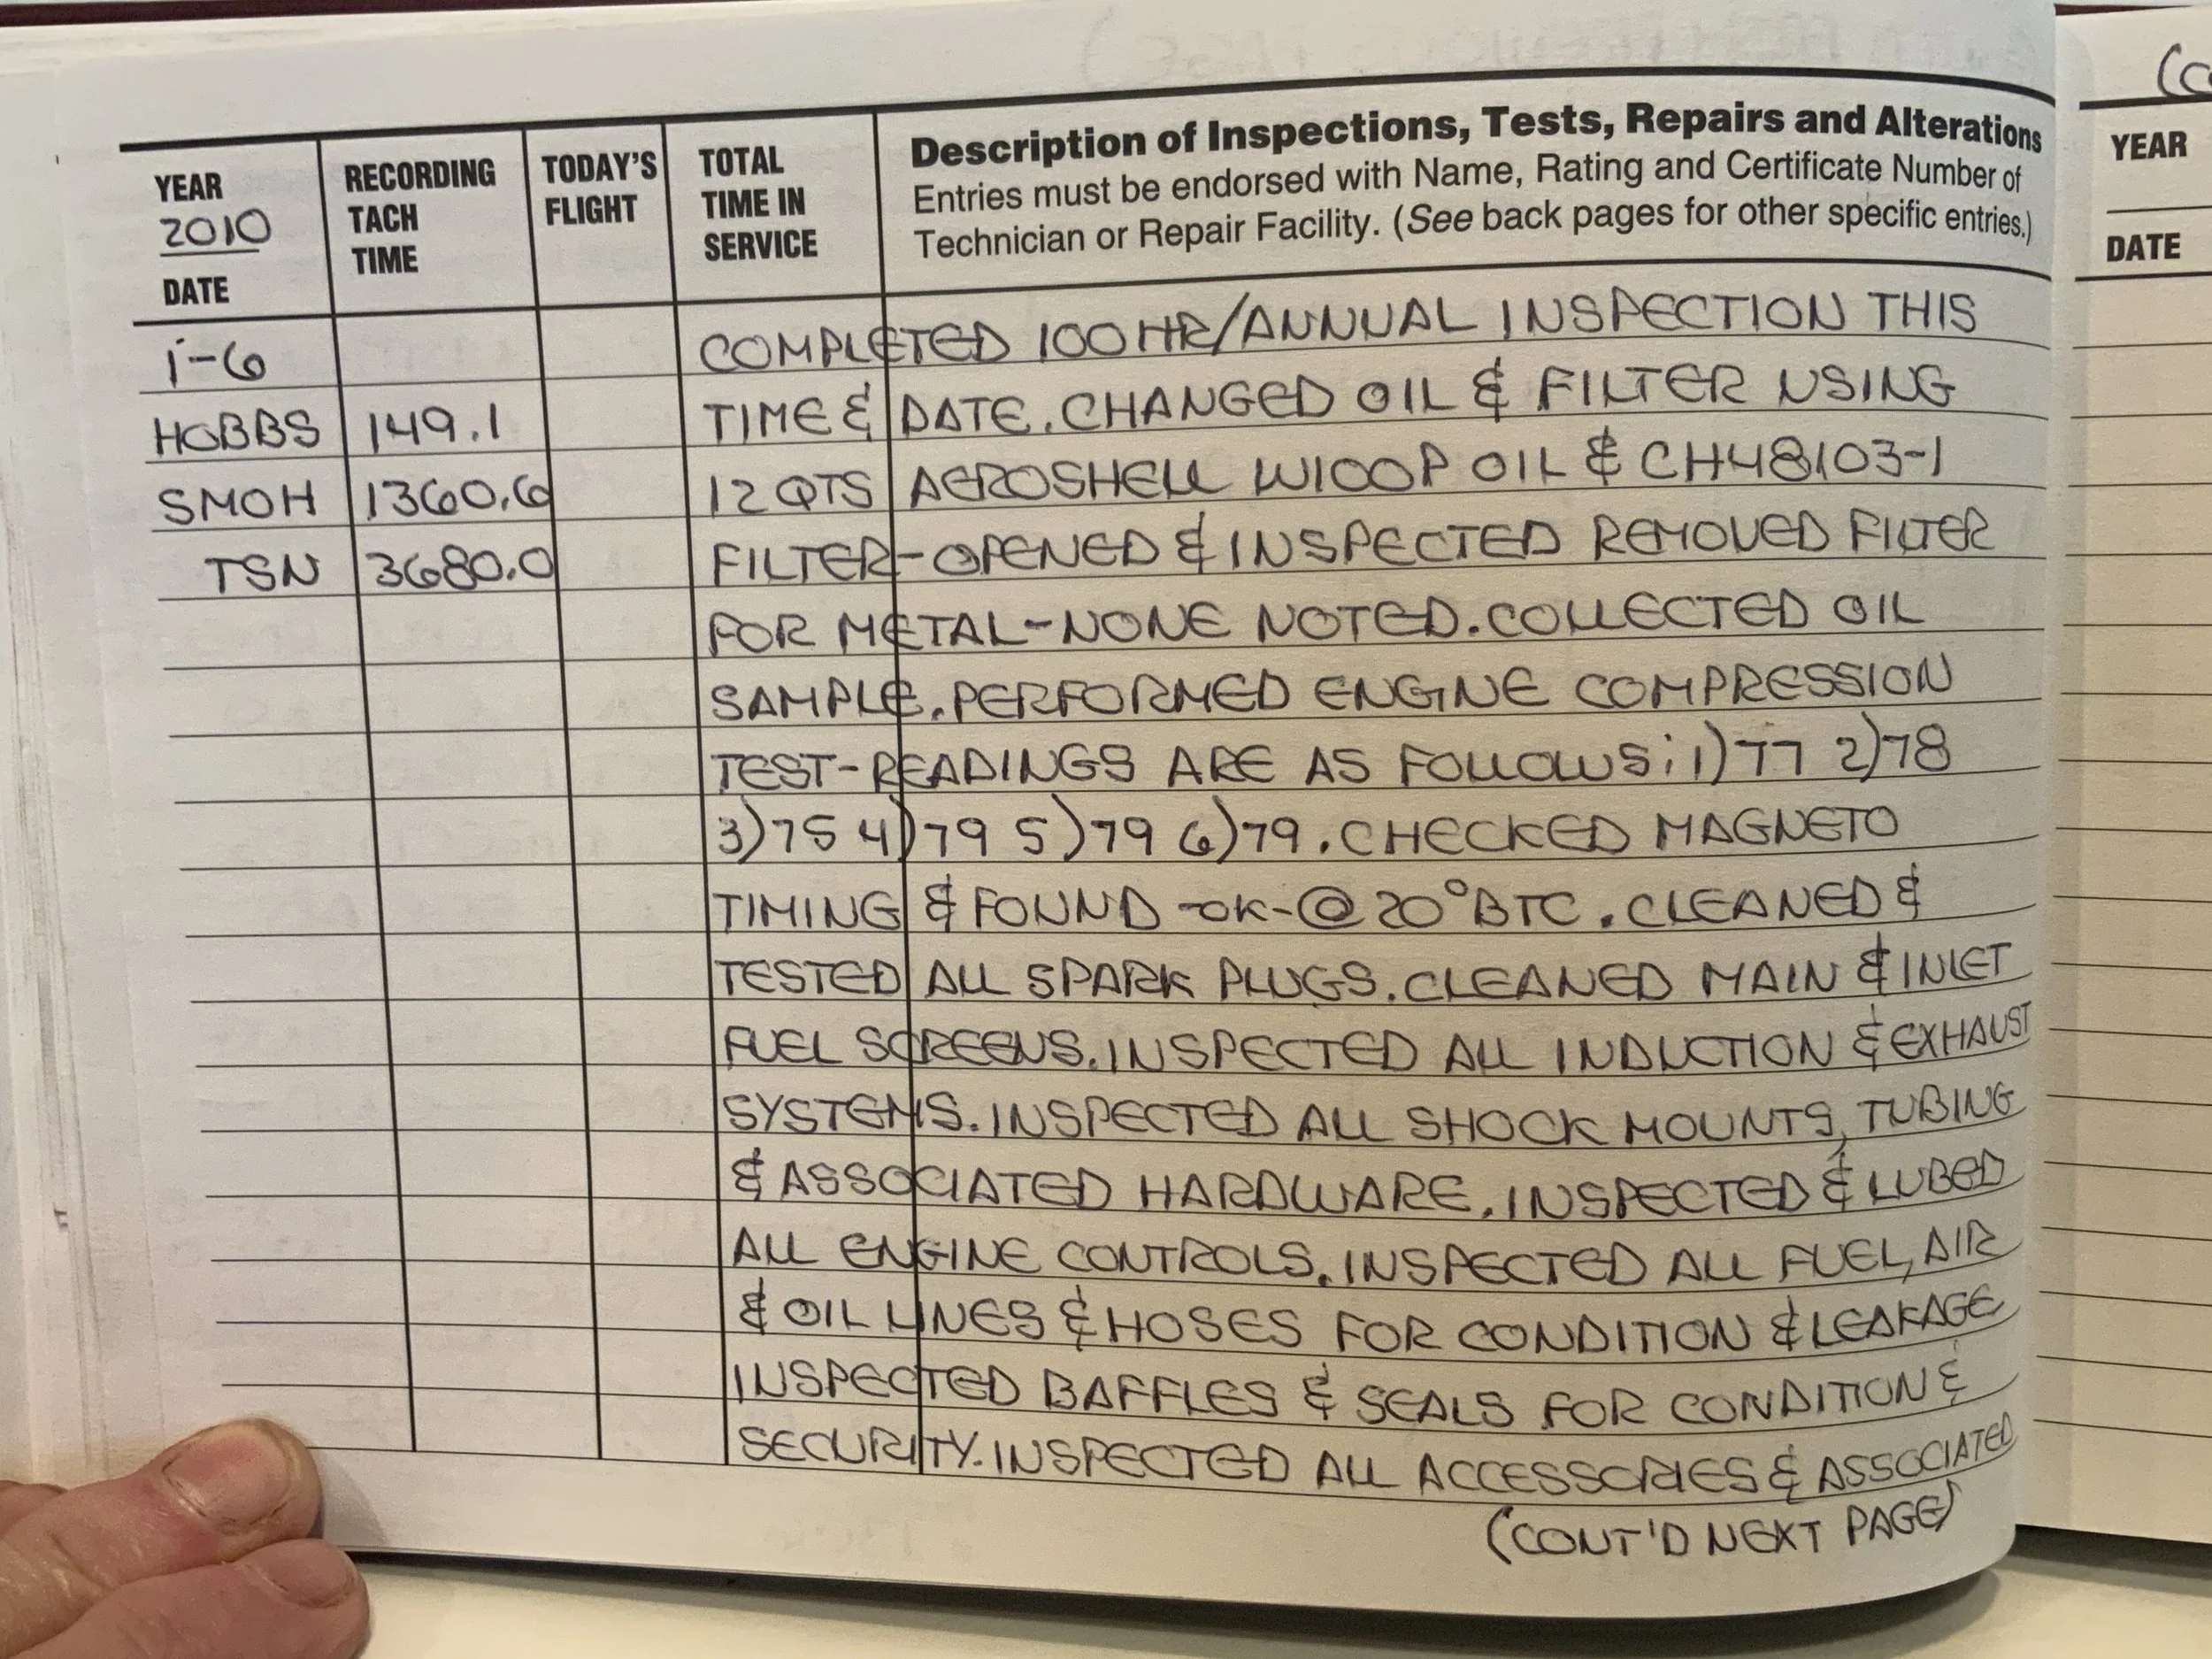 (C
YEAR
2010
DATE
RECORDING
TACH
TIME
TODAY'S
FLIGHT
TOTAL
TIME IN
SERVICE
Description of Inspections, Tests, Repairs and Alterations
Entries must be endorsed with Name, Rating and Certificate Number of
Technician or Repair Facility. (See back pages for other specific entries.)
YEAR
DATE
1-6 COMPLETED 100 HR/ANNUAL INSPECTION THIS
HOBBS 149.1 TIME & DATE. CHANGED OIL & FILTER USING
SMOH 1360.6 12 QTS AEROSHELL W100P OIL & CH48103-1
TSN 3680.0 FILTER-OPENED & INSPECTED REMOVED FILTER
FOR METAL-NONE NOTED. COLLECTED OIL
SAMPLE. PERFORMED ENGINE COMPRESSION
TEST-READINGS ARE AS FOLLOWS: 1)77 2)78
3)75 4)79 5)79 6)79. CHECKED MAGNETO
TIMING & FOUND -OK-@ 20° BTC. CLEANED &
TESTED ALL SPARK PLUGS. CLEANED MAIN & INLET
FUEL SCREENS. INSPECTED ALL INDUCTION & EXHAUST
SYSTEMS. INSPECTED ALL SHOCK MOUNTS, TUBING
& ASSOCIATED HARDWARE. INSPECTED & LUBED
ALL ENGINE CONTROLS. INSPECTED ALL FUEL, AIR
& OIL LINES & HOSES FOR CONDITION & LEAKAGE
INSPECTED BAFFLES & SEALS FOR CONDITION &
SECURITY. INSPECTED ALL ACCESSORIES & ASSOCIATED
(CONT'D NEXT PAGE)